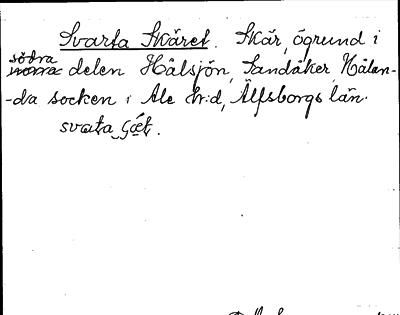 Svarta Skäret. Skär, ögrund i
södra
norra delen Hålsjön, Sandåker, Hålan-
-da socken i Ale hr:d, Älfsborgs län.
svata